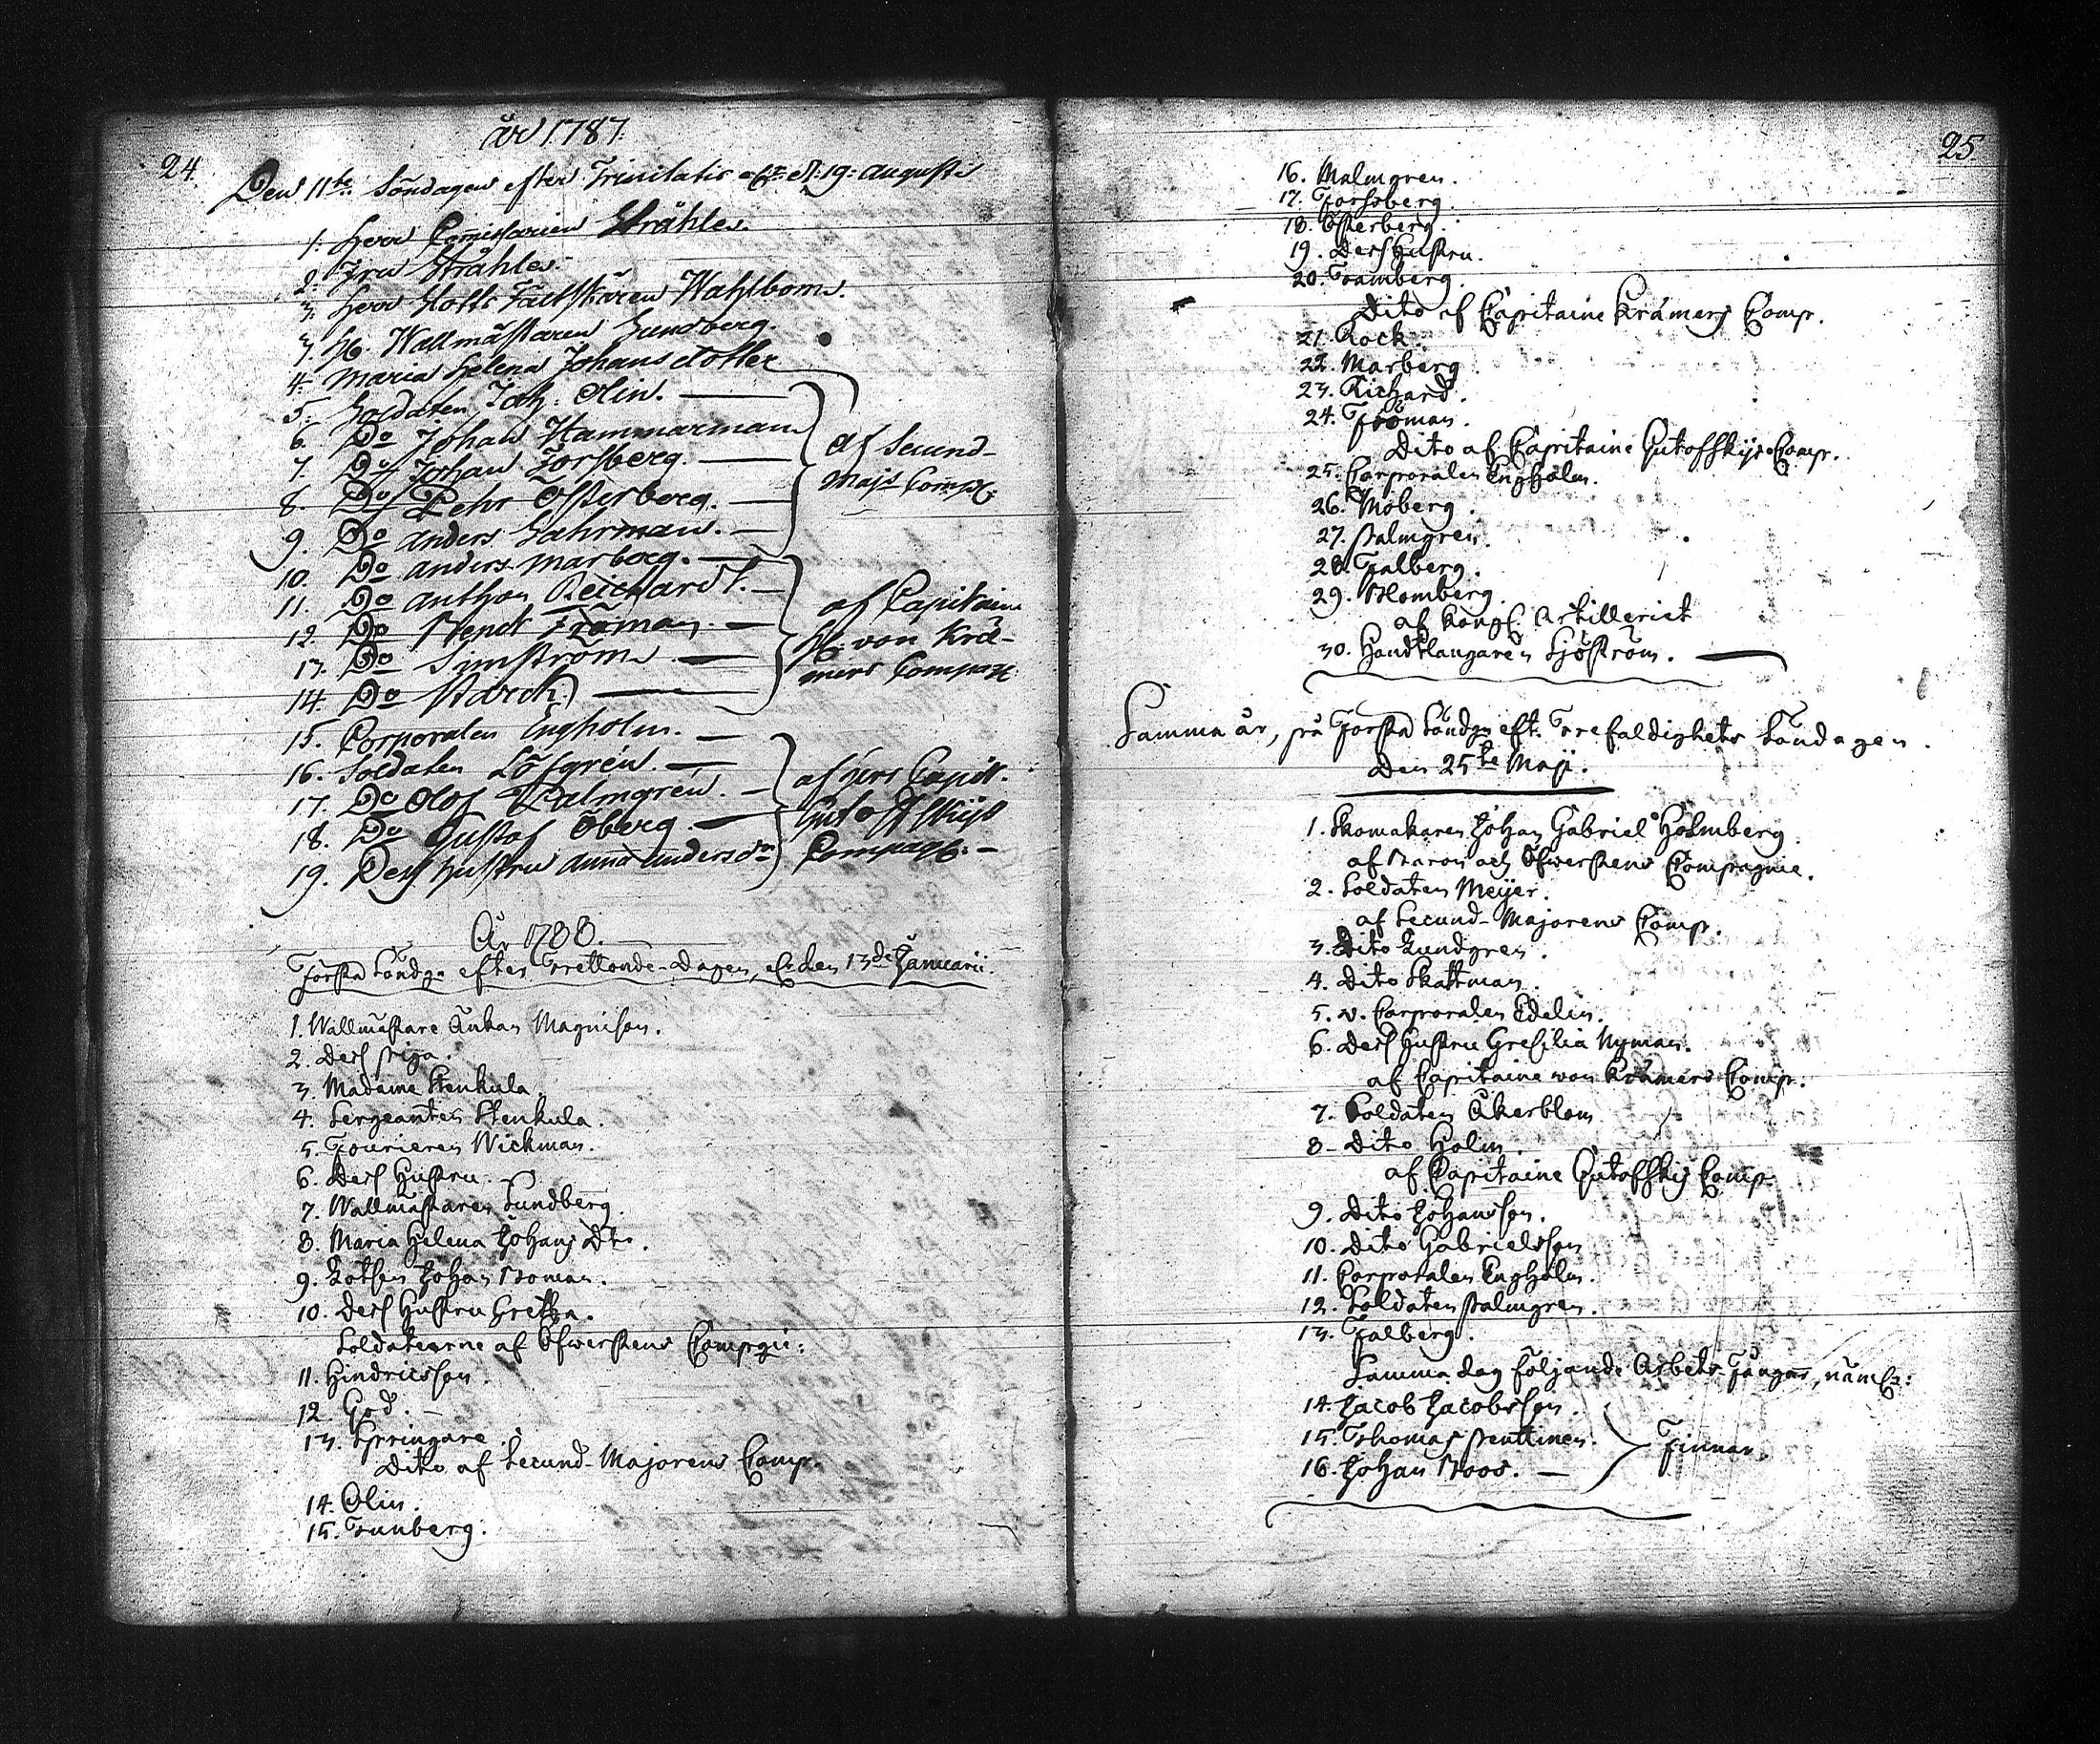 24.
år 1787.
Den 11te Söndagen efter Trinitatis d: 19: Augusti
1. Herr Comissarien Stråhle.
2. Fru Stråhle.
3. Herr Slotts Fältskären Wahlbom.
3. H. Wallmästaren Lundberg.
4. Maria Helena Johans dotter
5. Soldaten Joh: Olin.
6. Do Johan Hammarman
7. Do Johan Forsberg.
8. Do Pehr Österberg.
9. Do Anders Gahrman.
af Secund-
Majs Comp:
10. Do Anders Marberg.
11. Do Anthon Reichardt.
12. Do Bendt Fråman.
13. Do Simström.
14. Do Starck
af Capitain
H. von Krä-
mers Compag:
15. Corporalen Engholm.
16. Soldaten Löfgrén.
17. Do Olof Palmgren.
18. Do Gustaf Öberg.
19. Dess hustru Anna Anders dr
af Herr Capit.
Gutoffskijs
Compag:
År 1788.
Första Söndg: efter Trettonde-Dagen, el: den 13de Januarii.
1. Wallmästare Änkan Magnison.
2. Dess piga.
3. Madame Stenkula
4. Sergeanten Stenkula.
5. Fourieren Wickman.
6. Dess Hustru.
7. Wallmästaren Lundberg.
8. Maria Helena Johans Dtr.
9. Lotsen Johan Boman.
10. Dess Hustru Gretha.
Soldaterne af Öfwerstens Compgn:
11. Hindricsson.
12. God.
13. Springare.
Dito af Secund-Majorens Comp.
14. Olin.
15. Tunberg.
25.
16. Malmgren.
17. Forssberg.
18. Österberg.
19. Dess Hustru.
20. Tramberg.
Dito af Capitaine Krämers Comp.
21. Rock.
22. Marberg
23. Richard.
24. Froman.
Dito af Capitaine Gutoffskijs Comp.
25. Corporalen Engholm.
26. Moberg.
27. Palmgren.
28. Falberg.
29. Blomberg.
af Kongl. Artilleriet
30. Handtlangaren Sjöström.
Samma år, på Första Söndg: eft. Trefaldighets Söndagen.
Den 25te Maji.
1. Skomakaren Johan Gabriel Holmberg
af Baron och Öfwerstens Compagnie.
2. Soldaten Meijer.
af Secund-Majorens Comp.
3. Dito Lundgren.
4. Dito Skattman.
5. v. Corporalen Edelin.
6. Dess Hustru Gresilia Nyman.
af Capitaine von Krämers Comp.
7. Soldaten Åkerblom
8. Dito Holm.
af Capitaine Gutoffskij Comp.
9. Dito Johansson.
10. Dito Gabrielsson
11. Corporalen Engholm.
12. Soldaten Palmgren.
13. Falberg.
Samma dag följande Arbets-Fångar, näml:
14. Jacob Jacobsson.
15. Thomas Penttinen.
16. Johan Boos.
Finnar.